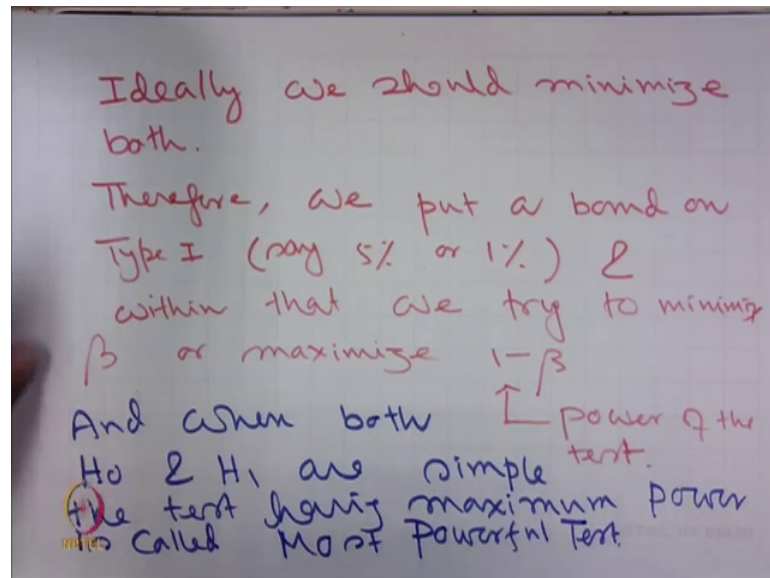 Ideally we should minimize
both.
Therefore, we put a bound on
Type I (say 5% or 1%) &
within that we try to minimiz
β or maximize 1-β
power of the
test.
And when both
H0 & H1 are simple
the test having maximum power
is called Most Powerful Test.
NPTEL